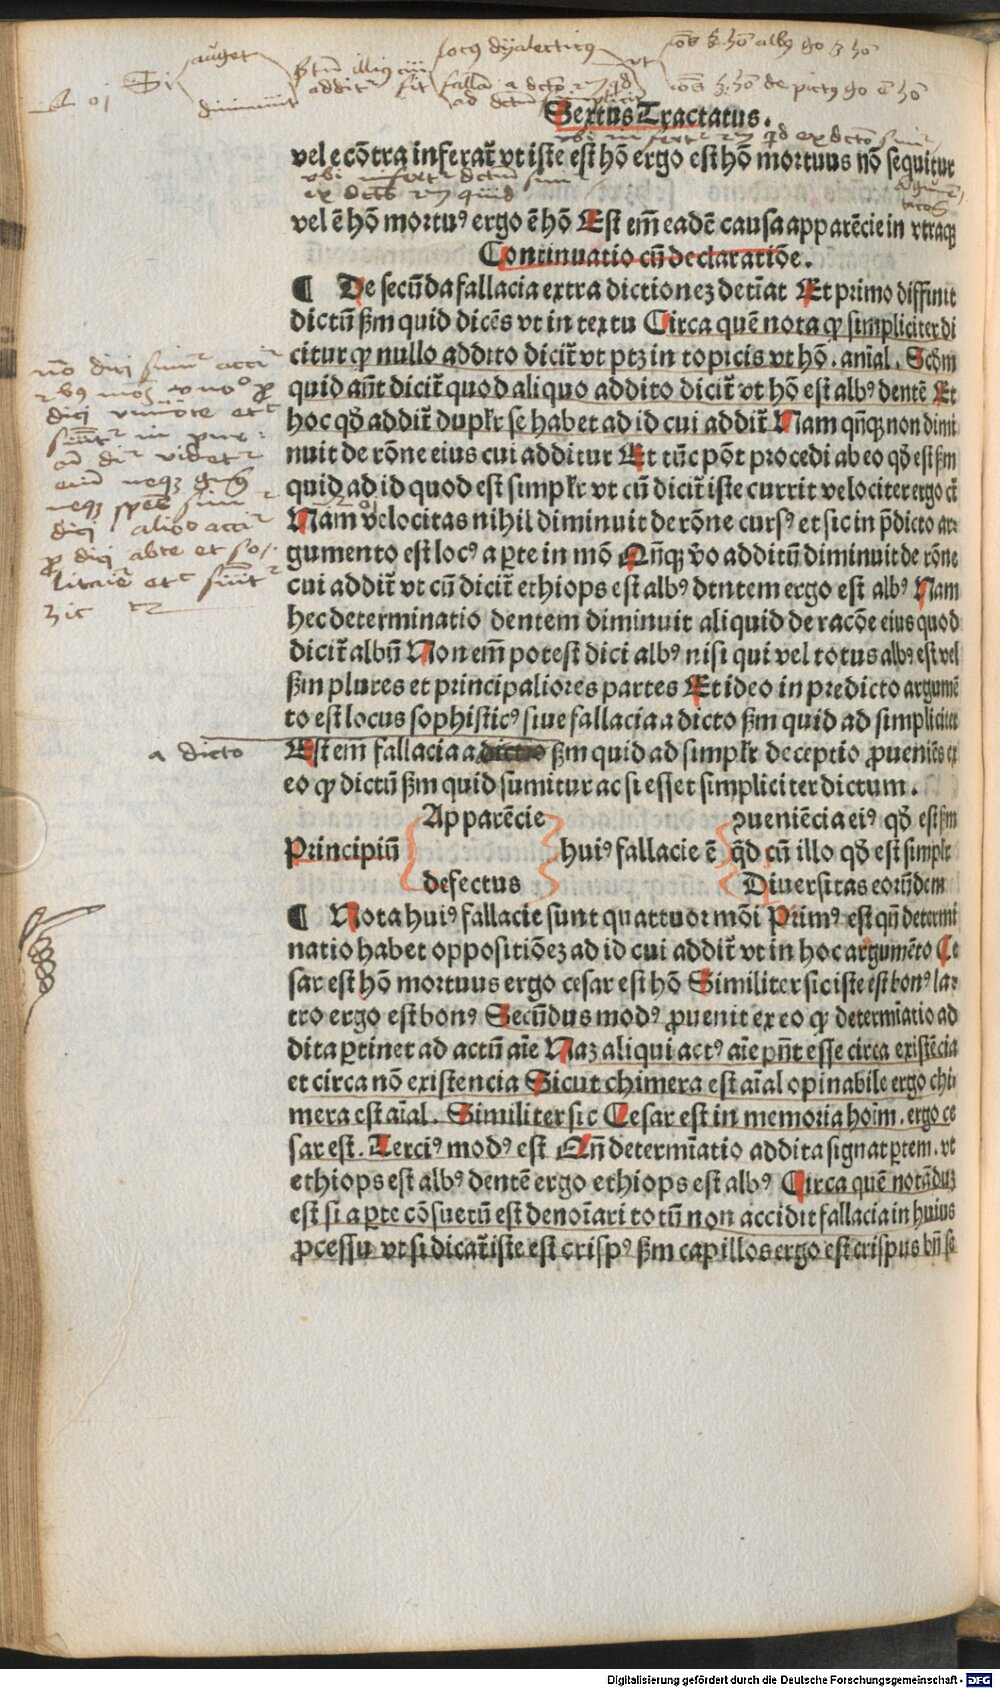 auget
Si
diminuit
additr sit
locus dyalecticus
ad dictum simpliciter
vt
Sextus Tractatus.
vel ecõtra inferat̃ vt iste est hõ ergo est hõ mortuus nõ sequitur
vel ẽ hõ mortuꝰ ergo ẽ hõ Est em̃ eadẽ causa apparẽcie in vtraqꝫ
Continuatio cũ declaratiõe.
¶ De secũda fallacia extra dictionez det̃iat Et primo diffinit
dictũ ẜm quid dicẽs vt in textu Circa quẽ nota ꝙ simpliciter di
citur ꝙ nullo addito dicit̃ vt ptꝫ in topicis vt hõ. anĩal. Scd̃m
quid aũt dicit̃ quod aliquo addito dicit̃ vt hõ est albꝰ dentẽ Et
hoc qd̃ addit̃ dupłr se habet ad id cui addit̃ Nam qñqꝫ non dimi
nuit de rõne eius cui additur Et tũc põt procedi ab eo qd̃ est ẜm
quid ad id quod est simpłr vt cũ dicit̃ iste currit velociter ergo cr̃t
Nam velocitas nihil diminuit de rõne cursꝰ et sic in p̃dicto ar⸗
gumento est locꝰ a ꝑte in mõ Qñqꝫ ṽo additũ diminuit de rõne
cui addit̃ vt cũ dicit̃ ethiops est albꝰ dentem ergo est albꝰ Nam
hec determinatio dentem diminuit aliquid de racõe eius quod
dicit̃ albũ Non em̃ potest dici albꝰ nisi qui vel totus albꝰ est vel
ẜm plures et principaliores partes Et ideo in predicto argumẽ
to est locus sophisticꝰ siue fallacia a dicto ẜm quid ad simpliciter
a dicto
Est em̃ fallacia a dicto ẜm quid ad simpłr deceptio ꝓueniẽs ex
eo ꝙ dictũ ẜm quid sumitur ac si esset simpliciter dictum.
Apparẽcie ꝯueniẽcia eiꝰ qd̃ est ẜm
Principiũ huiꝰ fallacie ẽ q̃d cũ illo qd̃ est simpłr
defectus Diuersitas eorũdem
¶ Nota huiꝰ fallacie sunt quattuor mõi Primꝰ est qñ determi
natio habet oppositiõez ad id cui addit̃ vt in hoc argumẽto Ce
sar est hõ mortuus ergo cesar est hõ Similiter sic iste est bonꝰ la⸗
tro ergo est bonꝰ Secũdus modꝰ ꝓuenit ex eo ꝙ determĩatio ad
dita ꝑtinet ad actũ aĩe Naz aliqui actꝰ aĩe pñt esse circa existẽcia
et circa nõ existencia Sicut chimera est aĩal opinabile ergo chi⸗
mera est aĩal. Similiter sic Cesar est in memoria hoĩm. ergo ce
sar est. Terciꝰ modꝰ est Qñ determĩatio addita signat ꝑtem. vt
ethiops est albꝰ dentẽ ergo ethiops est albꝰ Circa quẽ notãduz
est si a ꝑte cõsuetũ est denoĩari totũ non accidit fallacia in huius
ꝓcessu vt si dicat̃ iste est crispꝰ ẜm capillos ergo est crispus bñ se
Digitalisierung gefördert durch die Deutsche Forschungsgemeinschaft - DFG